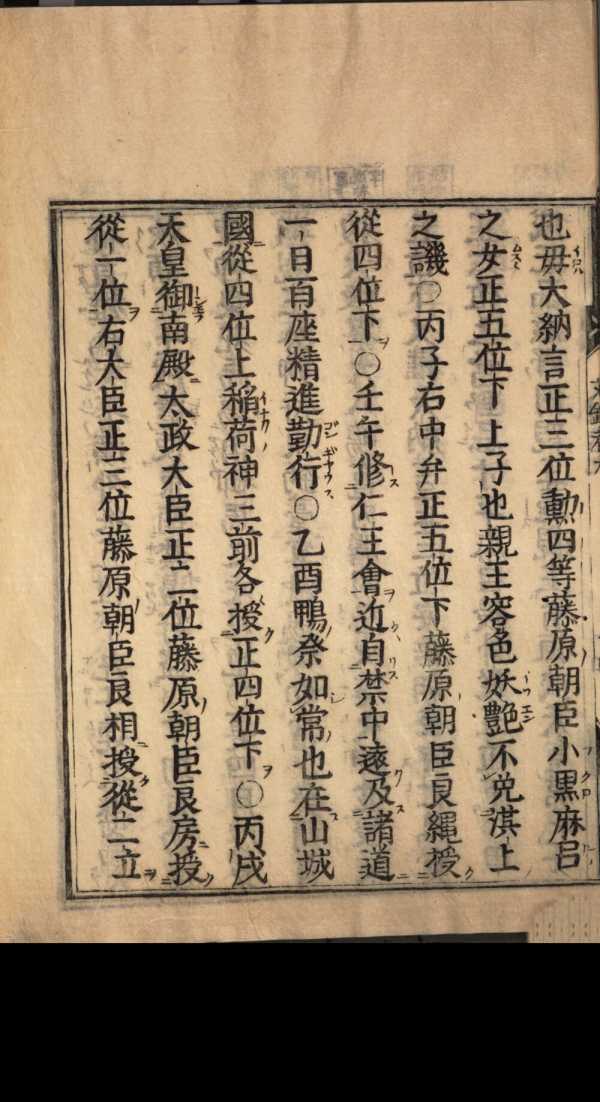 也母大納言正三位勲四等藤原朝臣小黒麻呂
之女正五位下上子也親王容色妖艶不免淇上
之譏〇丙子右中弁正五位下藤原朝臣良縄授
從四位下〇壬午修仁王會近自禁中遠及諸道
一日百座精進勤行〇乙酉鴨祭如常也在山城
國從四位上稲荷神三前各授正四位下〇丙戌
天皇御南殿太政大臣正二位藤原朝臣良房授
從一位右大臣正三位藤原朝臣良相授從二位